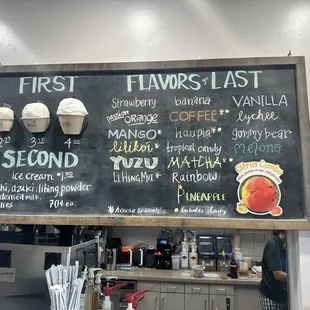 FIRST
2
3
4
SECOND
ice cream
azuki, lihing powder
densed milk
70¢ ea.
FLAVORS LAST
Strawberry
passion orange
MANGO*
lilikoi*
YUZU
LI HING MUI*
banana
COFFEE**
haupia**
tropical candy
MATCHA**
Rainbow
PINEAPPLE
VANILLA
lychee
gummy bear
melona
Citrus Combo
*house specials
*includes dairy